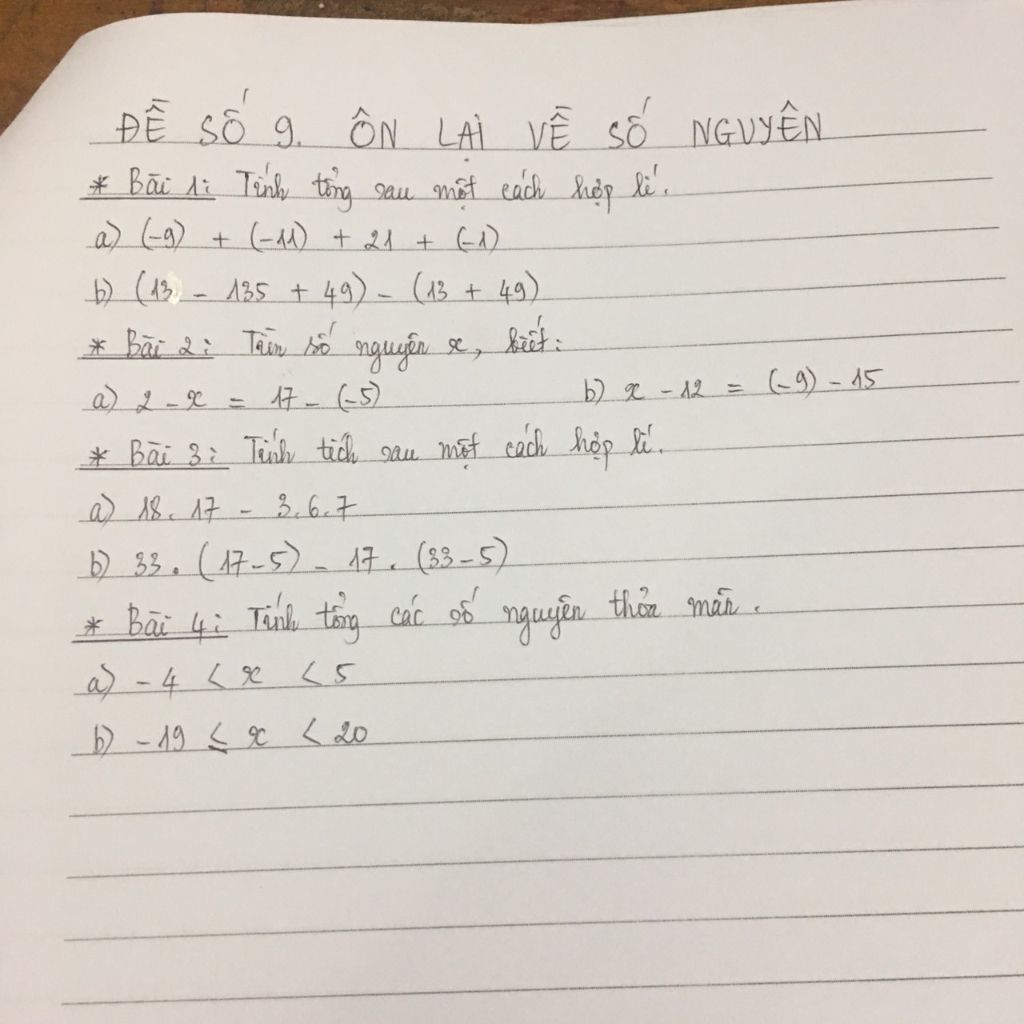 ĐỀ SỐ 9. ÔN LẠI VỀ SỐ NGUYÊN
* Bài 1: Tính tổng sau một cách hợp lí.
a) (-9) + (-11) + 21 + (-1)
b) (13 - 135 + 49) - (13 + 49)
* Bài 2: Tìm số nguyên x, biết:
a) 2 - x = 17 - (-5) b) x - 12 = (-9) - 15
* Bài 3: Tính tích sau một cách hợp lí.
a) 18. 17 - 3. 6. 7
b) 33. (17 - 5) - 17. (33 - 5)
* Bài 4: Tính tổng các số nguyên thỏa mãn.
a) - 4 < x < 5
b) - 19 ≤ x < 20